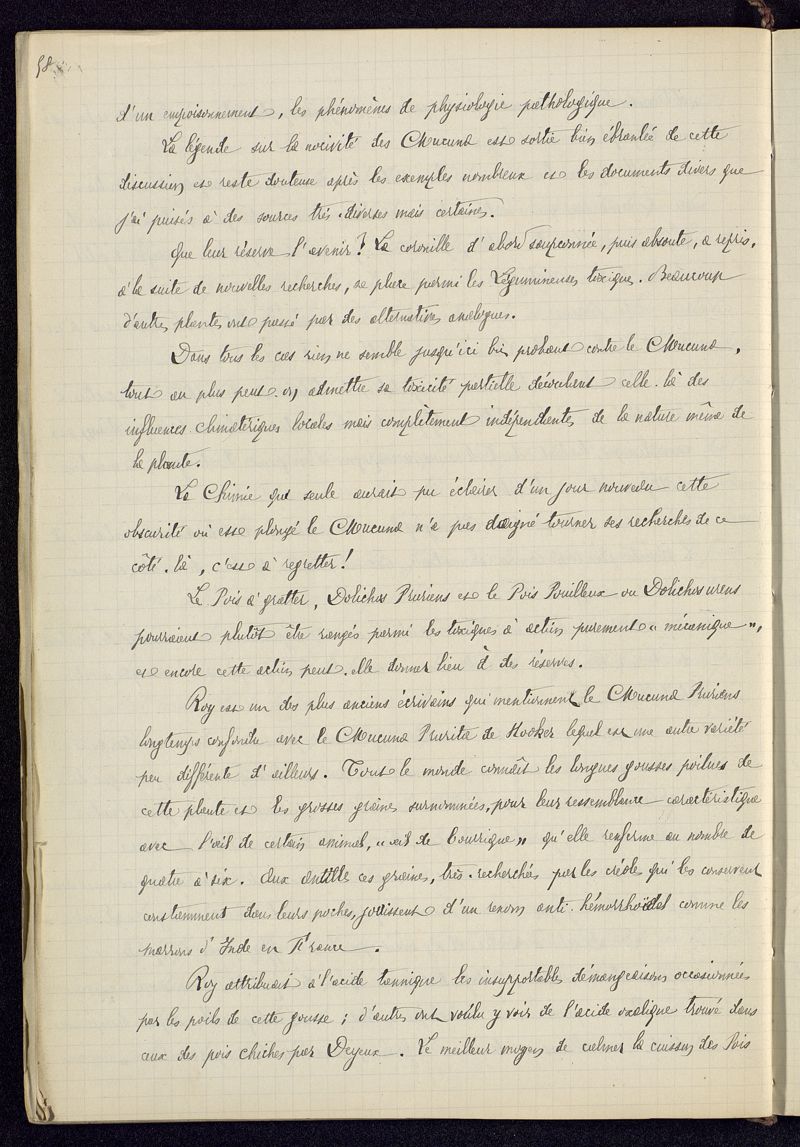 58
d'un empoisonnement, les phénomènes de physiologie pathologique.
La légende sur la nocivité des Mucuna est sortie bien ébranlée de cette
discussion et reste douteuse après les exemples nombreux et les documents divers que
j'ai puisés à des sources très-diverses mais certaines.
Que leur réserve l'avenir? La coronille d'abord soupçonnée, puis absoute, a repris,
à la suite de nouvelles recherches, sa place parmi les Légumineuses toxiques. Beaucoup
d'autres plantes ont passé par des alternatives analogues.
Dans tous les cas rien ne semble jusqu'ici bien probant contre le Mucuna,
tout au plus peut-on admettre sa toxicité partielle découlant celle-là des
influences climatériques locales mais complètement indépendantes de la nature même de
la plante.
La Chimie qui seule aurait pu éclairer d'un jour nouveau cette
obscurité où est plongé le Mucuna n'a pas daigné tourner ses recherches de ce
côté-là, c'est à regretter!
Le Pois à gratter, Dolichos Pruriens et le Pois Pouilleux ou Dolichos urens
pourraient plutôt être rangés parmi les toxiques à action purement "mécanique",
et encore cette action peut-elle donner lieu à des réserves.
Roy est un des plus anciens écrivains qui mentionnent le Mucuna Pruriens
longtemps confondu avec le Mucuna Prurita de Hooker lequel est une autre variété
peu différente d'ailleurs. Tout le monde connaît les longues gousses poilues de
cette plante et les grosses graines surnommées, pour leur ressemblance caractéristique
avec l'œil de certain animal, "œil de bourrique" qu'elle renferme au nombre de
quatre à six. Aux Antilles ces graines, très-recherchées par les créoles qui les conservent
constamment dans leurs poches, jouissent d'un renom anti-hémorrhoïdal comme les
marrons d'Inde en France.
Roy attribuait à l'acide tannique les insupportables démangeaisons occasionnées
par les poils de cette gousse; d'autres ont voulu y voir de l'acide oxalique trouvé dans
aux des pois chiches par Deyeux. Le meilleur moyen de calmer la cuisson des Pois